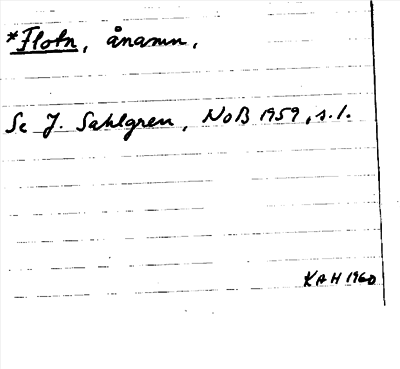 *Flotn, ånamn.
Se J. Sahlgren, NoB 1959, s. 1.
KAH 1960